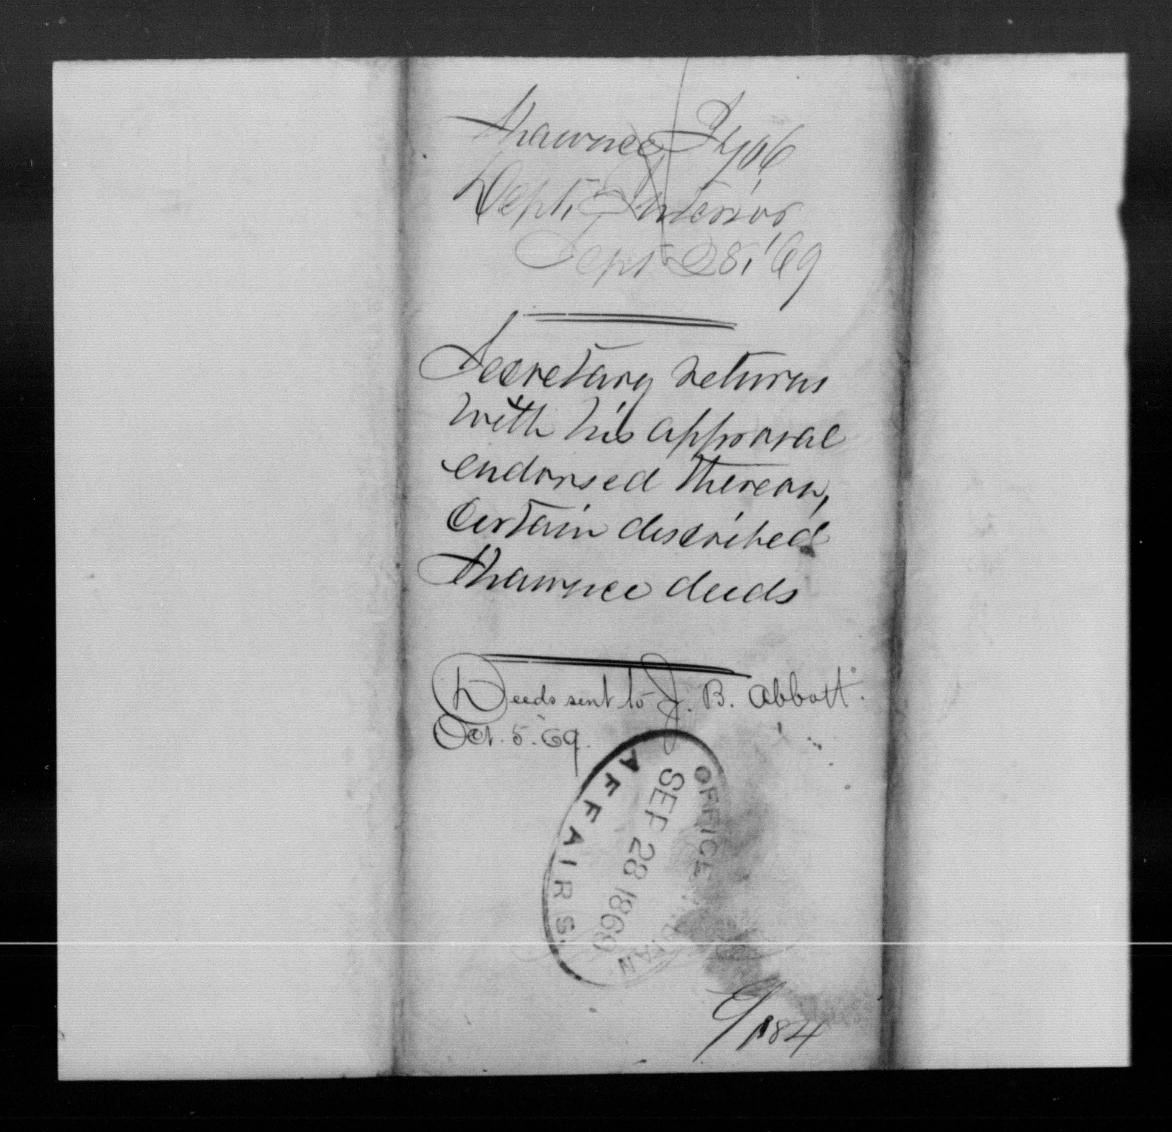 Shawnee I 906
Dept. Interior
Sept 28, '69
Secretary returns
with his approval
endorsed thereon,
Certain described
Shawnee deeds
Deeds sent to J. B. Abbott.
Oct. 5. 69.
OFFICE INDIAN
SEP 28 1869
AFFAIRS.
184